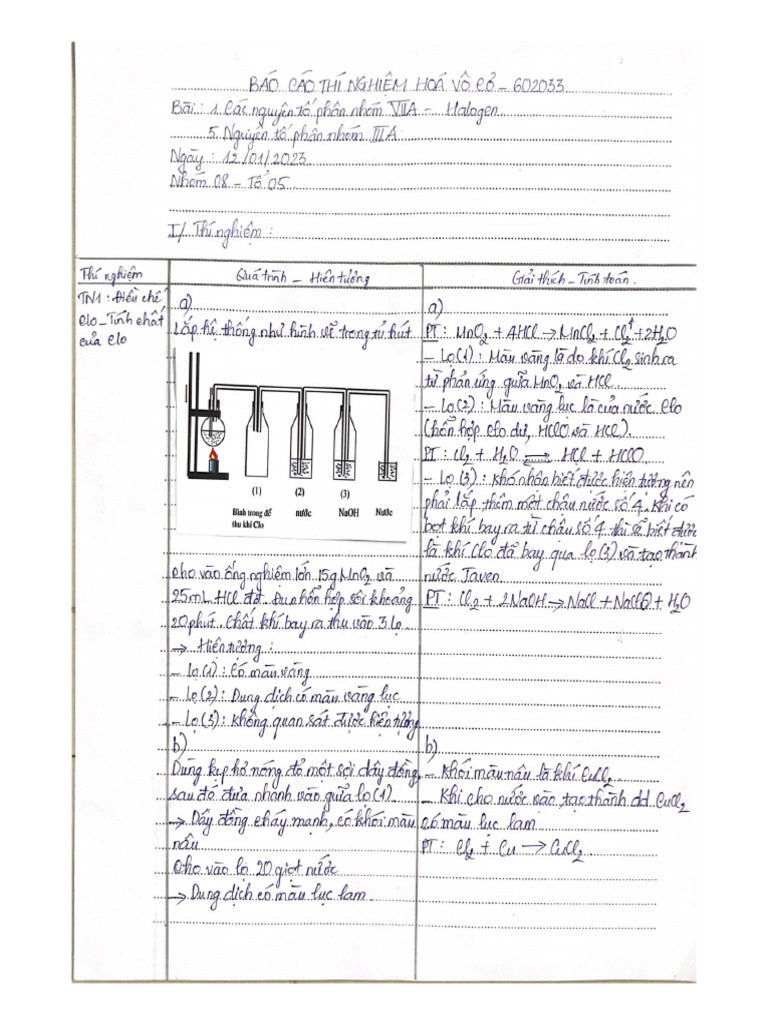 BÁO CÁO THÍ NGHIỆM HOÁ VÔ CƠ - 602033
Bài : 1. Các nguyên tố phân nhóm VIIA - Halogen
5. Nguyên tố phân nhóm IIIA
Ngày : 12/01/2023
Nhóm 08 - Tổ 05
I/ Thí nghiệm :
Thí nghiệm
Quá trình - Hiện tượng
Giải thích - Tính toán.
TN1 : Điều chế
clo - Tính chất
của clo
a)
Lắp hệ thống như hình vẽ trong tủ hút
(1)
(2)
(3)
Bình trong để
thu khí Clo
nước
NaOH
Nước
Cho vào ống nghiệm lớn 15g MnO2 và
25mL HCl đđ. Đun hỗn hợp sôi khoảng
20 phút. Chất khí bay ra thu vào 3 lọ.
→ Hiện tượng :
- Lọ (1) : Có màu vàng
- Lọ (2) : Dung dịch có màu vàng lục
- Lọ (3) : Không quan sát được hiện tượng
b)
Dùng kẹp hơ nóng đỏ một sợi dây đồng,
sau đó đưa nhanh vào giữa lọ (1).
→ Dây đồng cháy mạnh, có khói màu
nâu
Cho vào lọ 20 giọt nước
→ Dung dịch có màu lục lam.
a)
PT : MnO2 + 4HCl → MnCl2 + Cl2↑ + 2H2O
- Lọ (1) : Màu vàng là do khí Cl2 sinh ra
từ phản ứng giữa MnO2 và HCl.
- Lọ (2) : Màu vàng lục là của nước Clo
(hỗn hợp clo dư, HClO và HCl).
PT : Cl2 + H2O ⇌ HCl + HClO.
- Lọ (3) : Khó nhận biết được hiện tượng nên
phải lắp thêm một chậu nước số 4. Khi có
bọt khí bay ra từ chậu số 4 thì sẽ biết được
là khí Clo đã bay qua lọ (3) và tạo thành
nước Javen.
PT : Cl2 + 2NaOH → NaCl + NaClO + H2O
b)
- Khói màu nâu là khí CuCl2.
- Khi cho nước vào, tạo thành dd CuCl2
có màu lục lam
PT : Cl2 + Cu → CuCl2